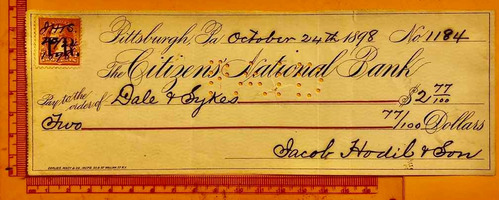 Pittsburgh, Pa October 24th 1898 No. 1184
The Citizens National Bank
Pay to the order of Dale & Sykes $2 77/100
Two 77/100 Dollars
Jacob Hodil & Son